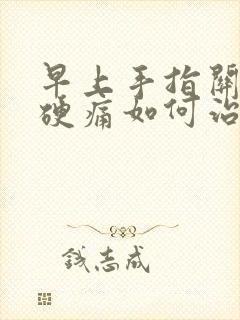 早上手指關
硬痛如何治
錢志成